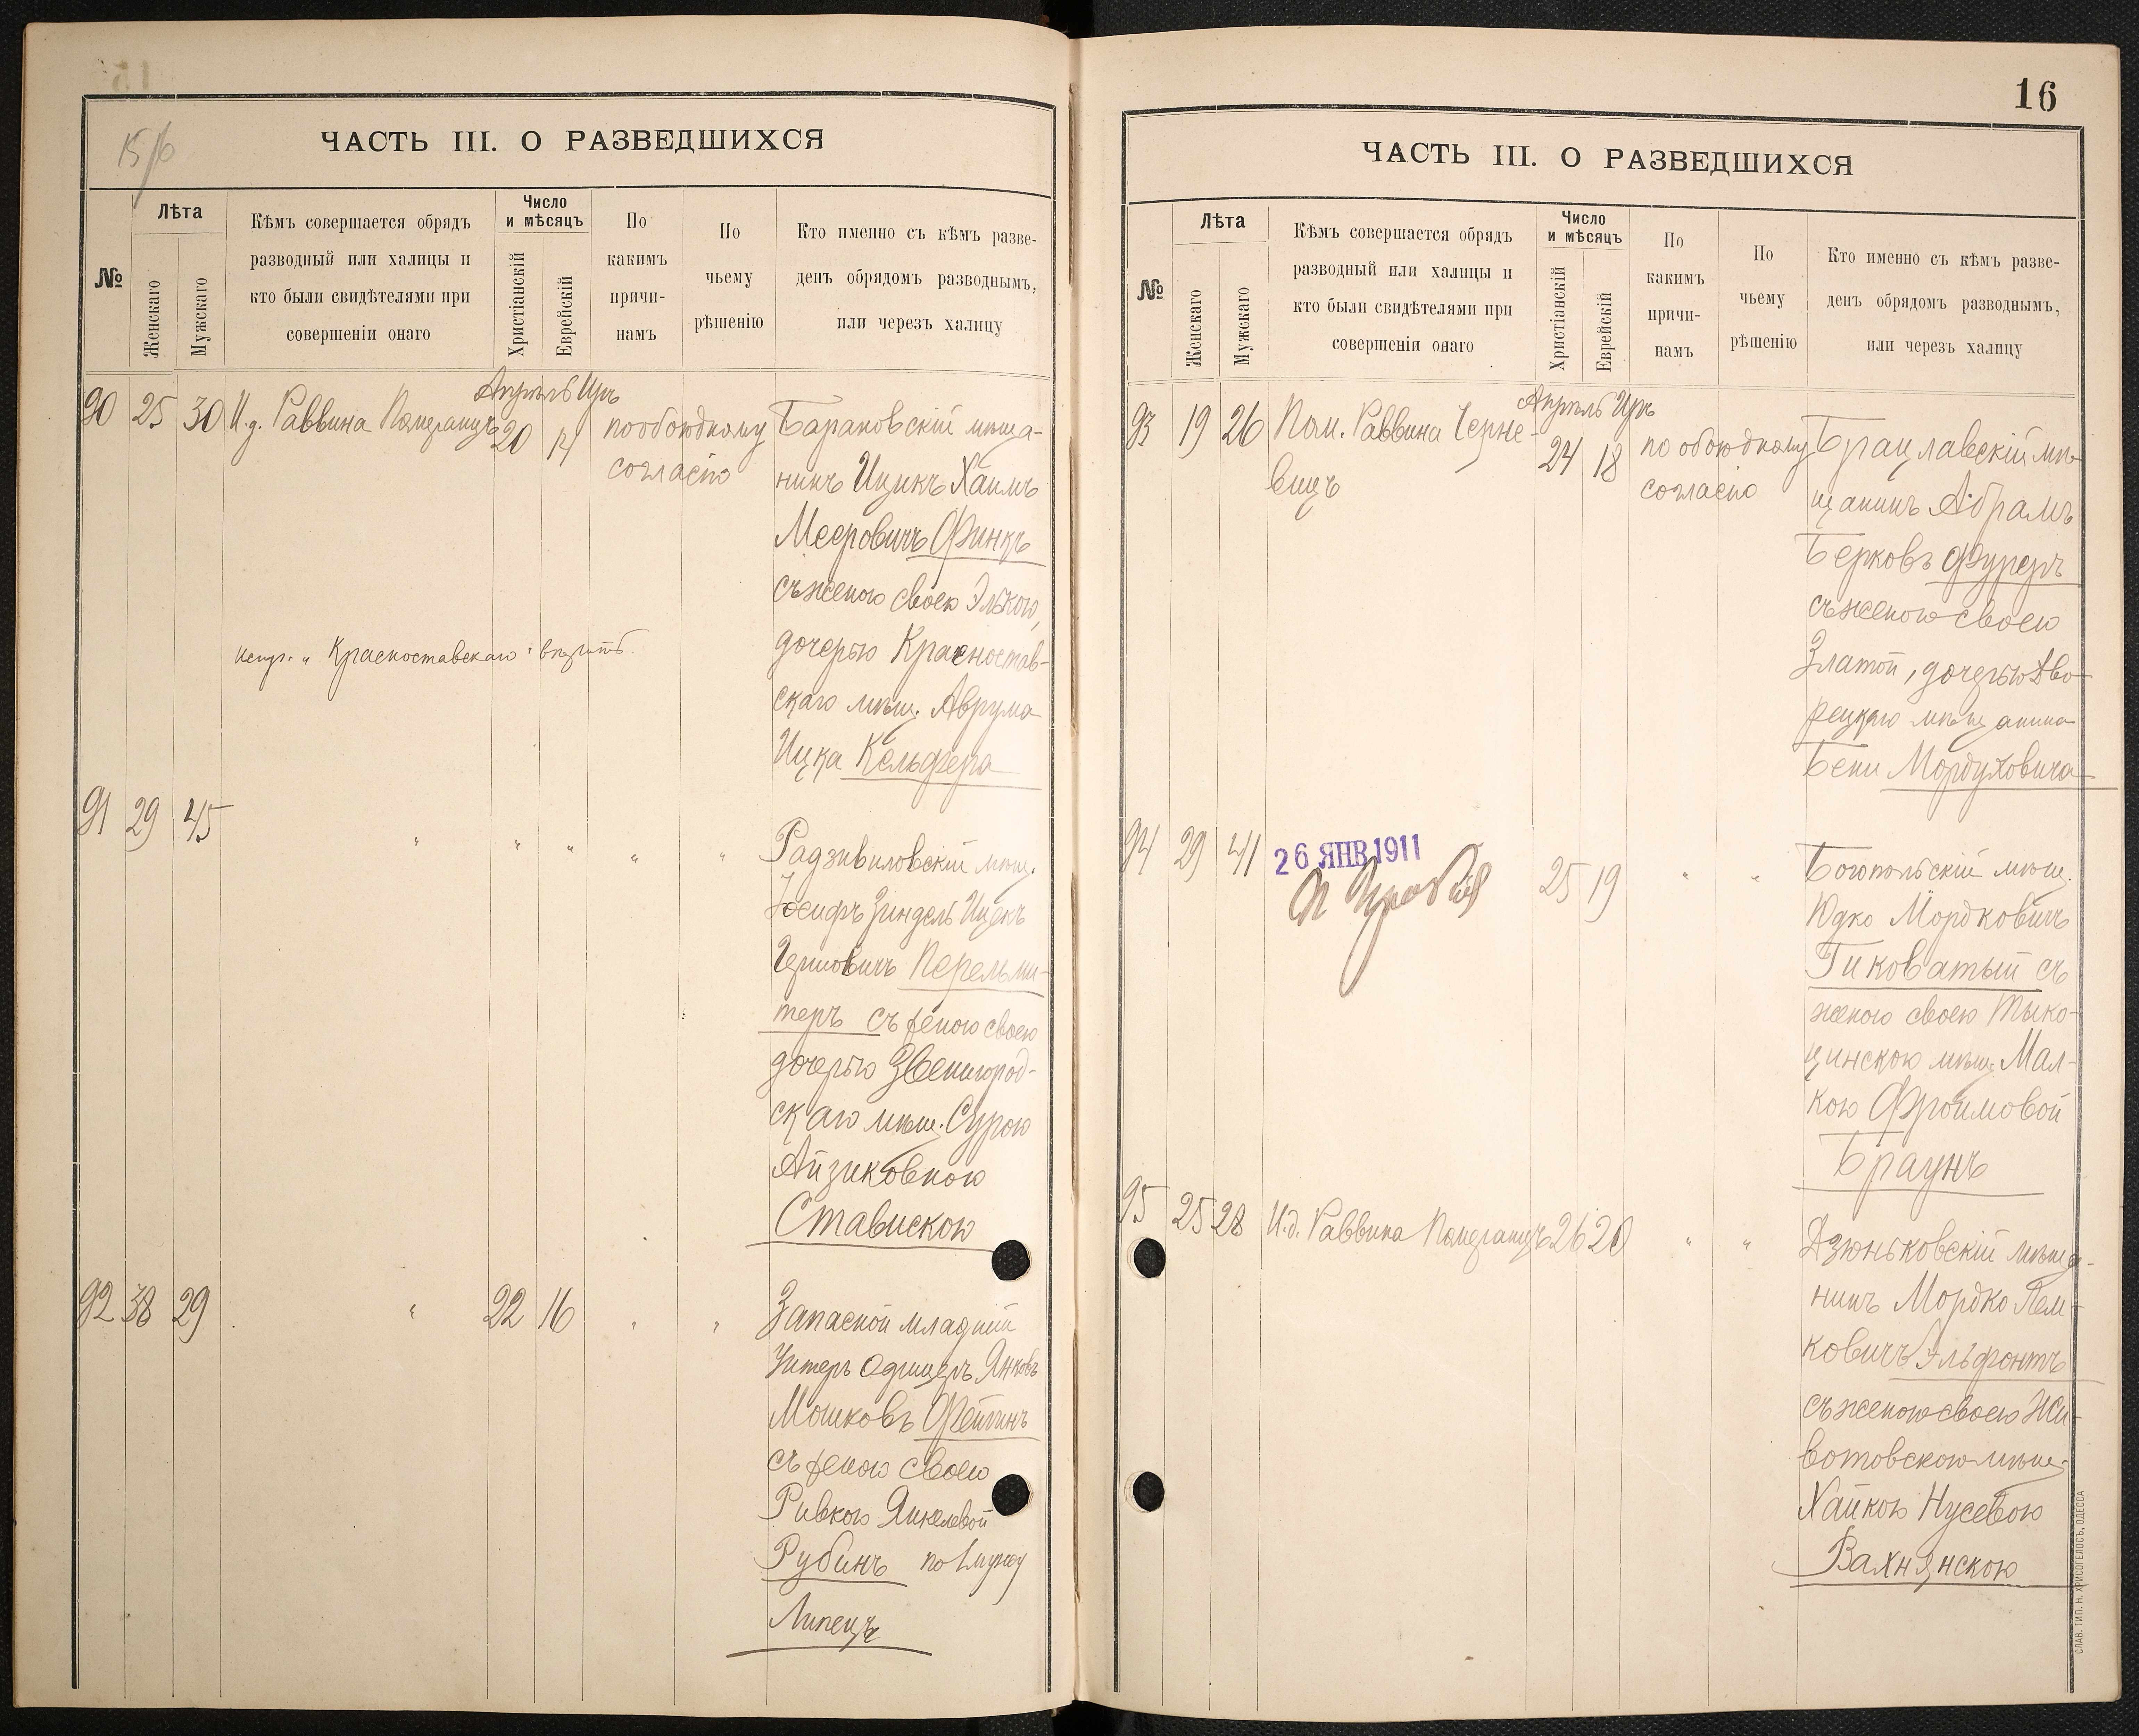 15/16
ЧАСТЬ III. О РАЗВЕДШИХСЯ
№
Лѣта
Женскаго
Мужскаго
Кѣмъ совершается обрядъ
разводный или халицы и
кто были свидѣтелями при
совершеніи онаго
Число
и мѣсяцъ
Христіанскій
Еврейскій
По
какимъ
причи-
намъ
По
чьему
рѣшенію
Кто именно съ кѣмъ разве-
денъ обрядомъ разводнымъ,
или черезъ халицу
Апрѣль Иръ
90 25 30 И.д. Раввина Померанцъ 20 14 по обоюдному
согласію
Барановскій мѣща-
нинъ Ицикъ Хаимъ
Мееровичъ Финкъ
съ женою своею Элькою,
дочерью Красностав-
скаго мѣщ. Аврума
Ицка Кельфера
Красноставскаго
91 29 45 " " " " "
Радзивиловскій мѣщ.
Іосифъ Зиндель Ицекъ
Перельми-
теръ съ женою своею
дочерью Звенигород-
скаго мѣщ. Сурою
Айзиковною
Ставискою
92 38 29 " 22 16 " "
Запасной младшій
Унтеръ Офицеръ Янковъ
Мошковъ Фейгинъ
съ женою своею
Ривкою Янкелевой
Рубинъ по 1 мужу
Липецъ
16
ЧАСТЬ III. О РАЗВЕДШИХСЯ
№
Лѣта
Женскаго
Мужскаго
Кѣмъ совершается обрядъ
разводный или халицы и
кто были свидѣтелями при
совершеніи онаго
Число
и мѣсяцъ
Христіанскій
Еврейскій
По
какимъ
причи-
намъ
По
чьему
рѣшенію
Кто именно съ кѣмъ разве-
денъ обрядомъ разводнымъ,
или черезъ халицу
Апрѣль Иръ
93 19 26 Пом. Раввина Черне-
вецъ
24 18 по обоюдному
согласію
Брацлавскій мѣ-
щанинъ Абрамъ
Берковъ Фуреръ
съ женою своею
Златой, дочерью Дво-
рецкаго мѣщанина
Бени Мордуховича
94 29 41 26 ЯНВ 1911 25 19 " "
Богопольскій мѣщ.
Юдко Мордковичъ
Гиковатый съ
женою своею Тыко-
цинскою мѣщ. Мал-
кою Фроимовой
Браунъ
95 25 28 И.д. Раввина Померанцъ 26 20 " "
Дзюньковскій мѣща-
нинъ Мордко Лем-
ковичъ Эльфонтъ
съ женою своею Жи-
вотовскою мѣщ.
Хайкою Нусевою
Вахнянскою
СЛАВ. ТИП. Н. ХРИСОГЕЛОСЪ, ОДЕССА